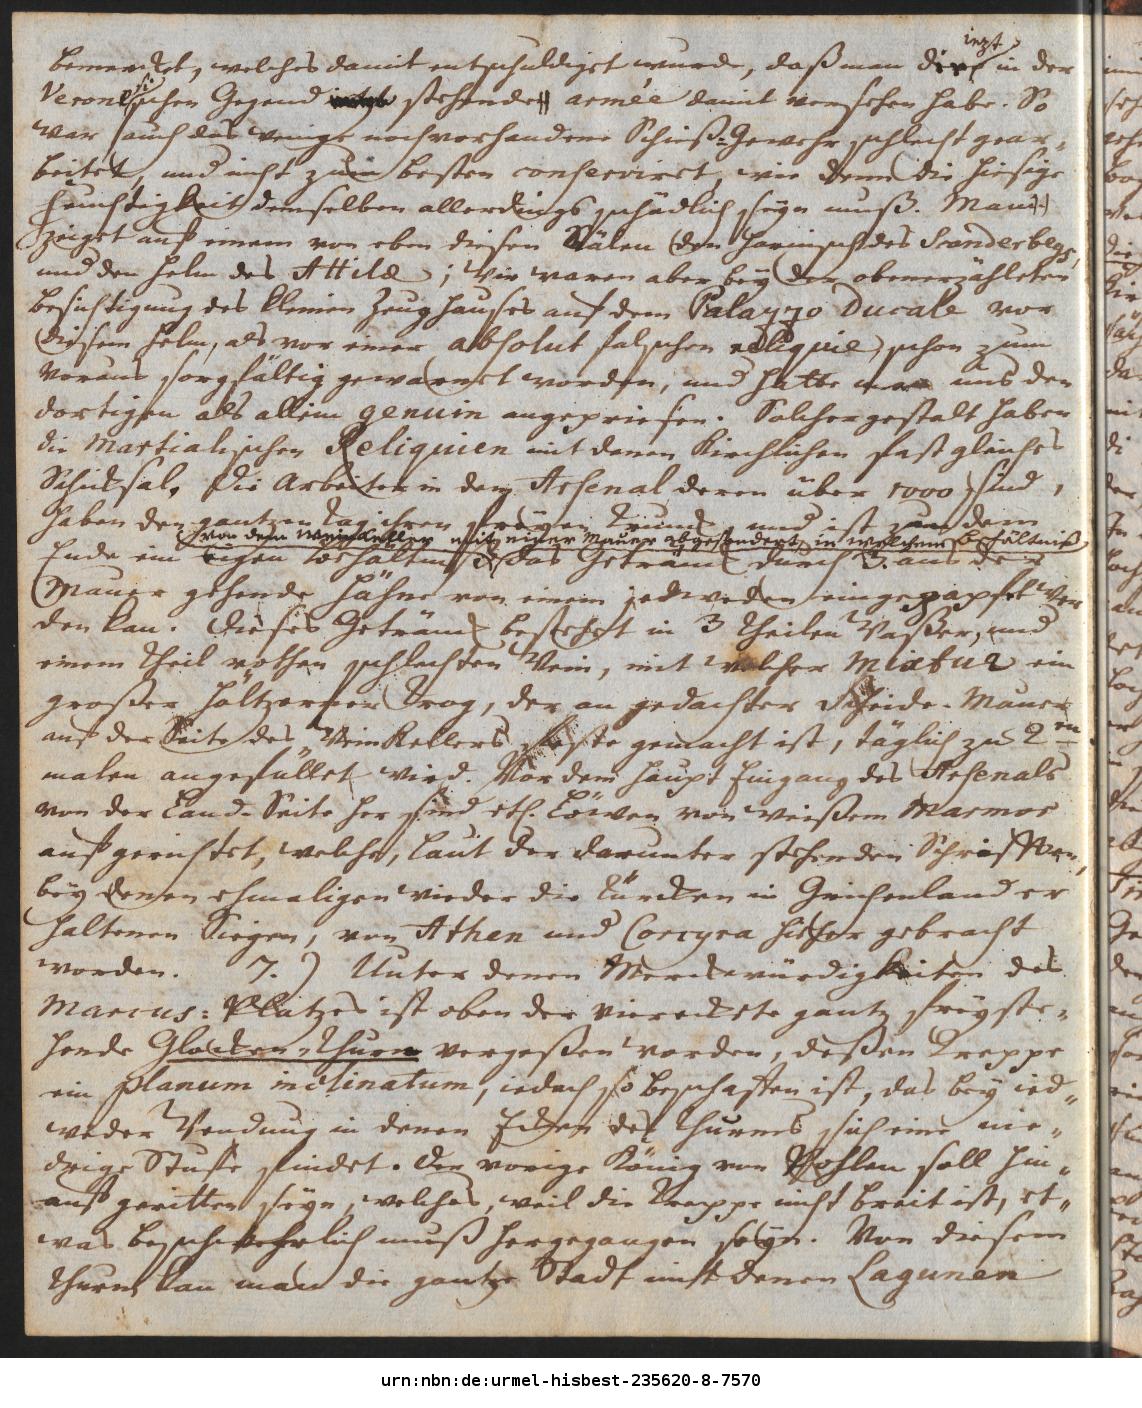 bemercket, welches damit entschuldiget wurde, daß man die iezt in der
Veronesischen Gegend stehende armée damit versehen habe. So
war auch das wenige noch vorhandene Schieß-Gewehr schlecht gear-
beitet, und nicht zum besten conserviret, wie denn die hiesige
Feuchtigkeit demselben allerdings schädlich seyn muß. Man
zeiget auf einem von eben diesen Sälen den Harnisch des Scanderbegs,
und den Helm des Attilæ; Wir waren aber bey der obenerzähleten
Besichtigung des kleinen Zeughauses auf dem Palazzo Ducale vor
diesem Helm, als vor einer absolut falschen reliquie, schon zum
voraus sorgfältig gewarnet worden, und hatte man uns den
dortigen als allein genuin angepriesen. Solchergestalt haben
die Martialischen Reliquien mit denen Kirchlichen fast gleiches
Schicksal. Die Arbeiter in dem Arsenal, deren über 1000 sind,
haben den gantzen Tag ihren freyen Trunck, und ist zu dem
von dem Weinkeller mit einer Mauer abgesondert, in welchem Behältniß
Ende ein eigen Behältniß das Geträncke durch 3. aus der
Mauer gehende Hähne von einem jedweden eingezapfet wer
den kan. Dieses Geträncke bestehet in 3 Theilen Waßer, und
einem Theil rothen schlechten Wein, mit welcher Mixtur ein
großer höltzerner Trog, der an gedachter Scheide-Mauer
auf der Seite des Weinkellers feste gemacht ist, täglich zu 2en
malen angefüllet wird. Vor dem Haupt Eingang des Arsenals
von der Land-Seite her sind etl. Löwen von weißem Marmor
aufgerichtet, welche, laut der darunter stehenden Schrifften,
bey denen ehmaligen wieder die Türcken in Griechenland er
haltenen Siegen, von Athen und Corcyra hieher gebracht
worden. 7.) Unter denen Merckwürdigkeiten des
Marcus-Platzes ist oben der viereckete gantz freyste-
hende Glocken-Thurn vergeßen worden, deßen Treppe
ein planum inclinatum, iedoch so beschaffen ist, das bey ied-
weder Wendung in denen Ecken des Thurmes sich eine nie-
drige Stuffe findet. Der vorige König von Pohlen soll hin-
auf geritten seyn, welches, weil die Treppe nicht breit ist, et-
was beschwehrlich muß hergegangen seyn. Von diesem
Thurn kan man die gantze Stadt mit denen Lagunen
urn:nbn:de:urmel-hisbest-235620-8-7570